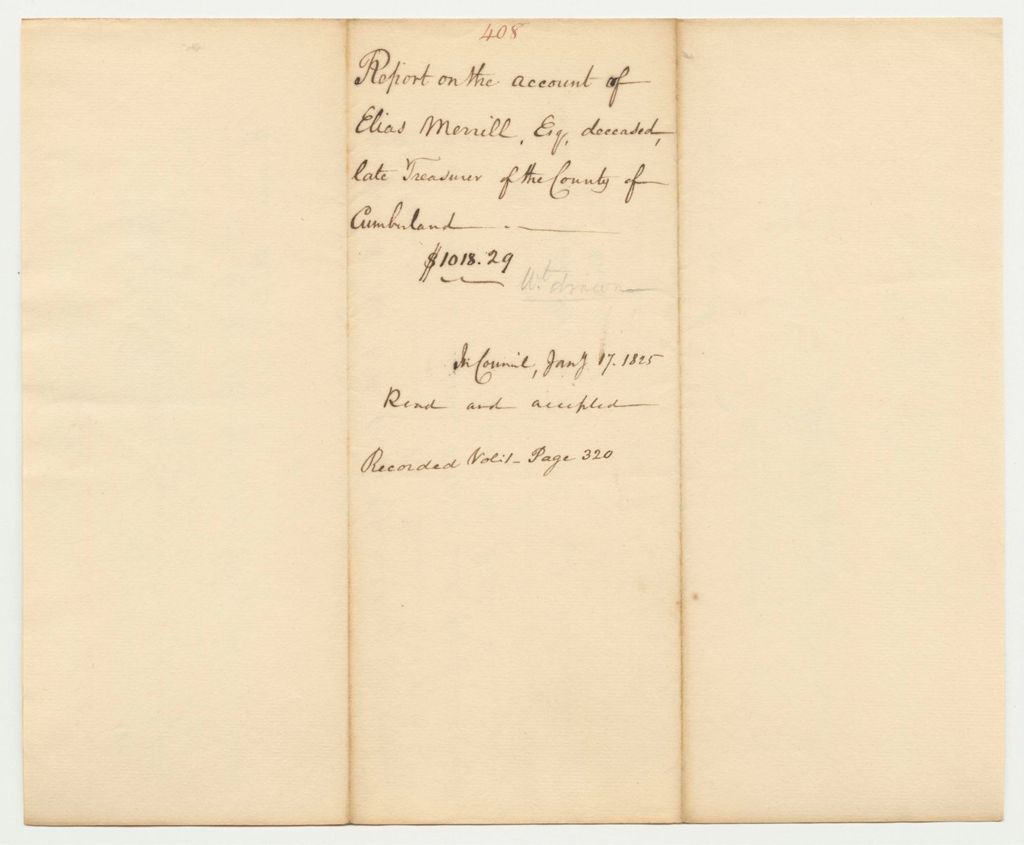 408
Report on the account of
Elias Merrill, Esq, deceased,
late Treasurer of the County of
Cumberland
$1018.29
Wt drawn
In Council, Jany 17. 1825
Read and accepted
Recorded Vol: 1 - Page 320